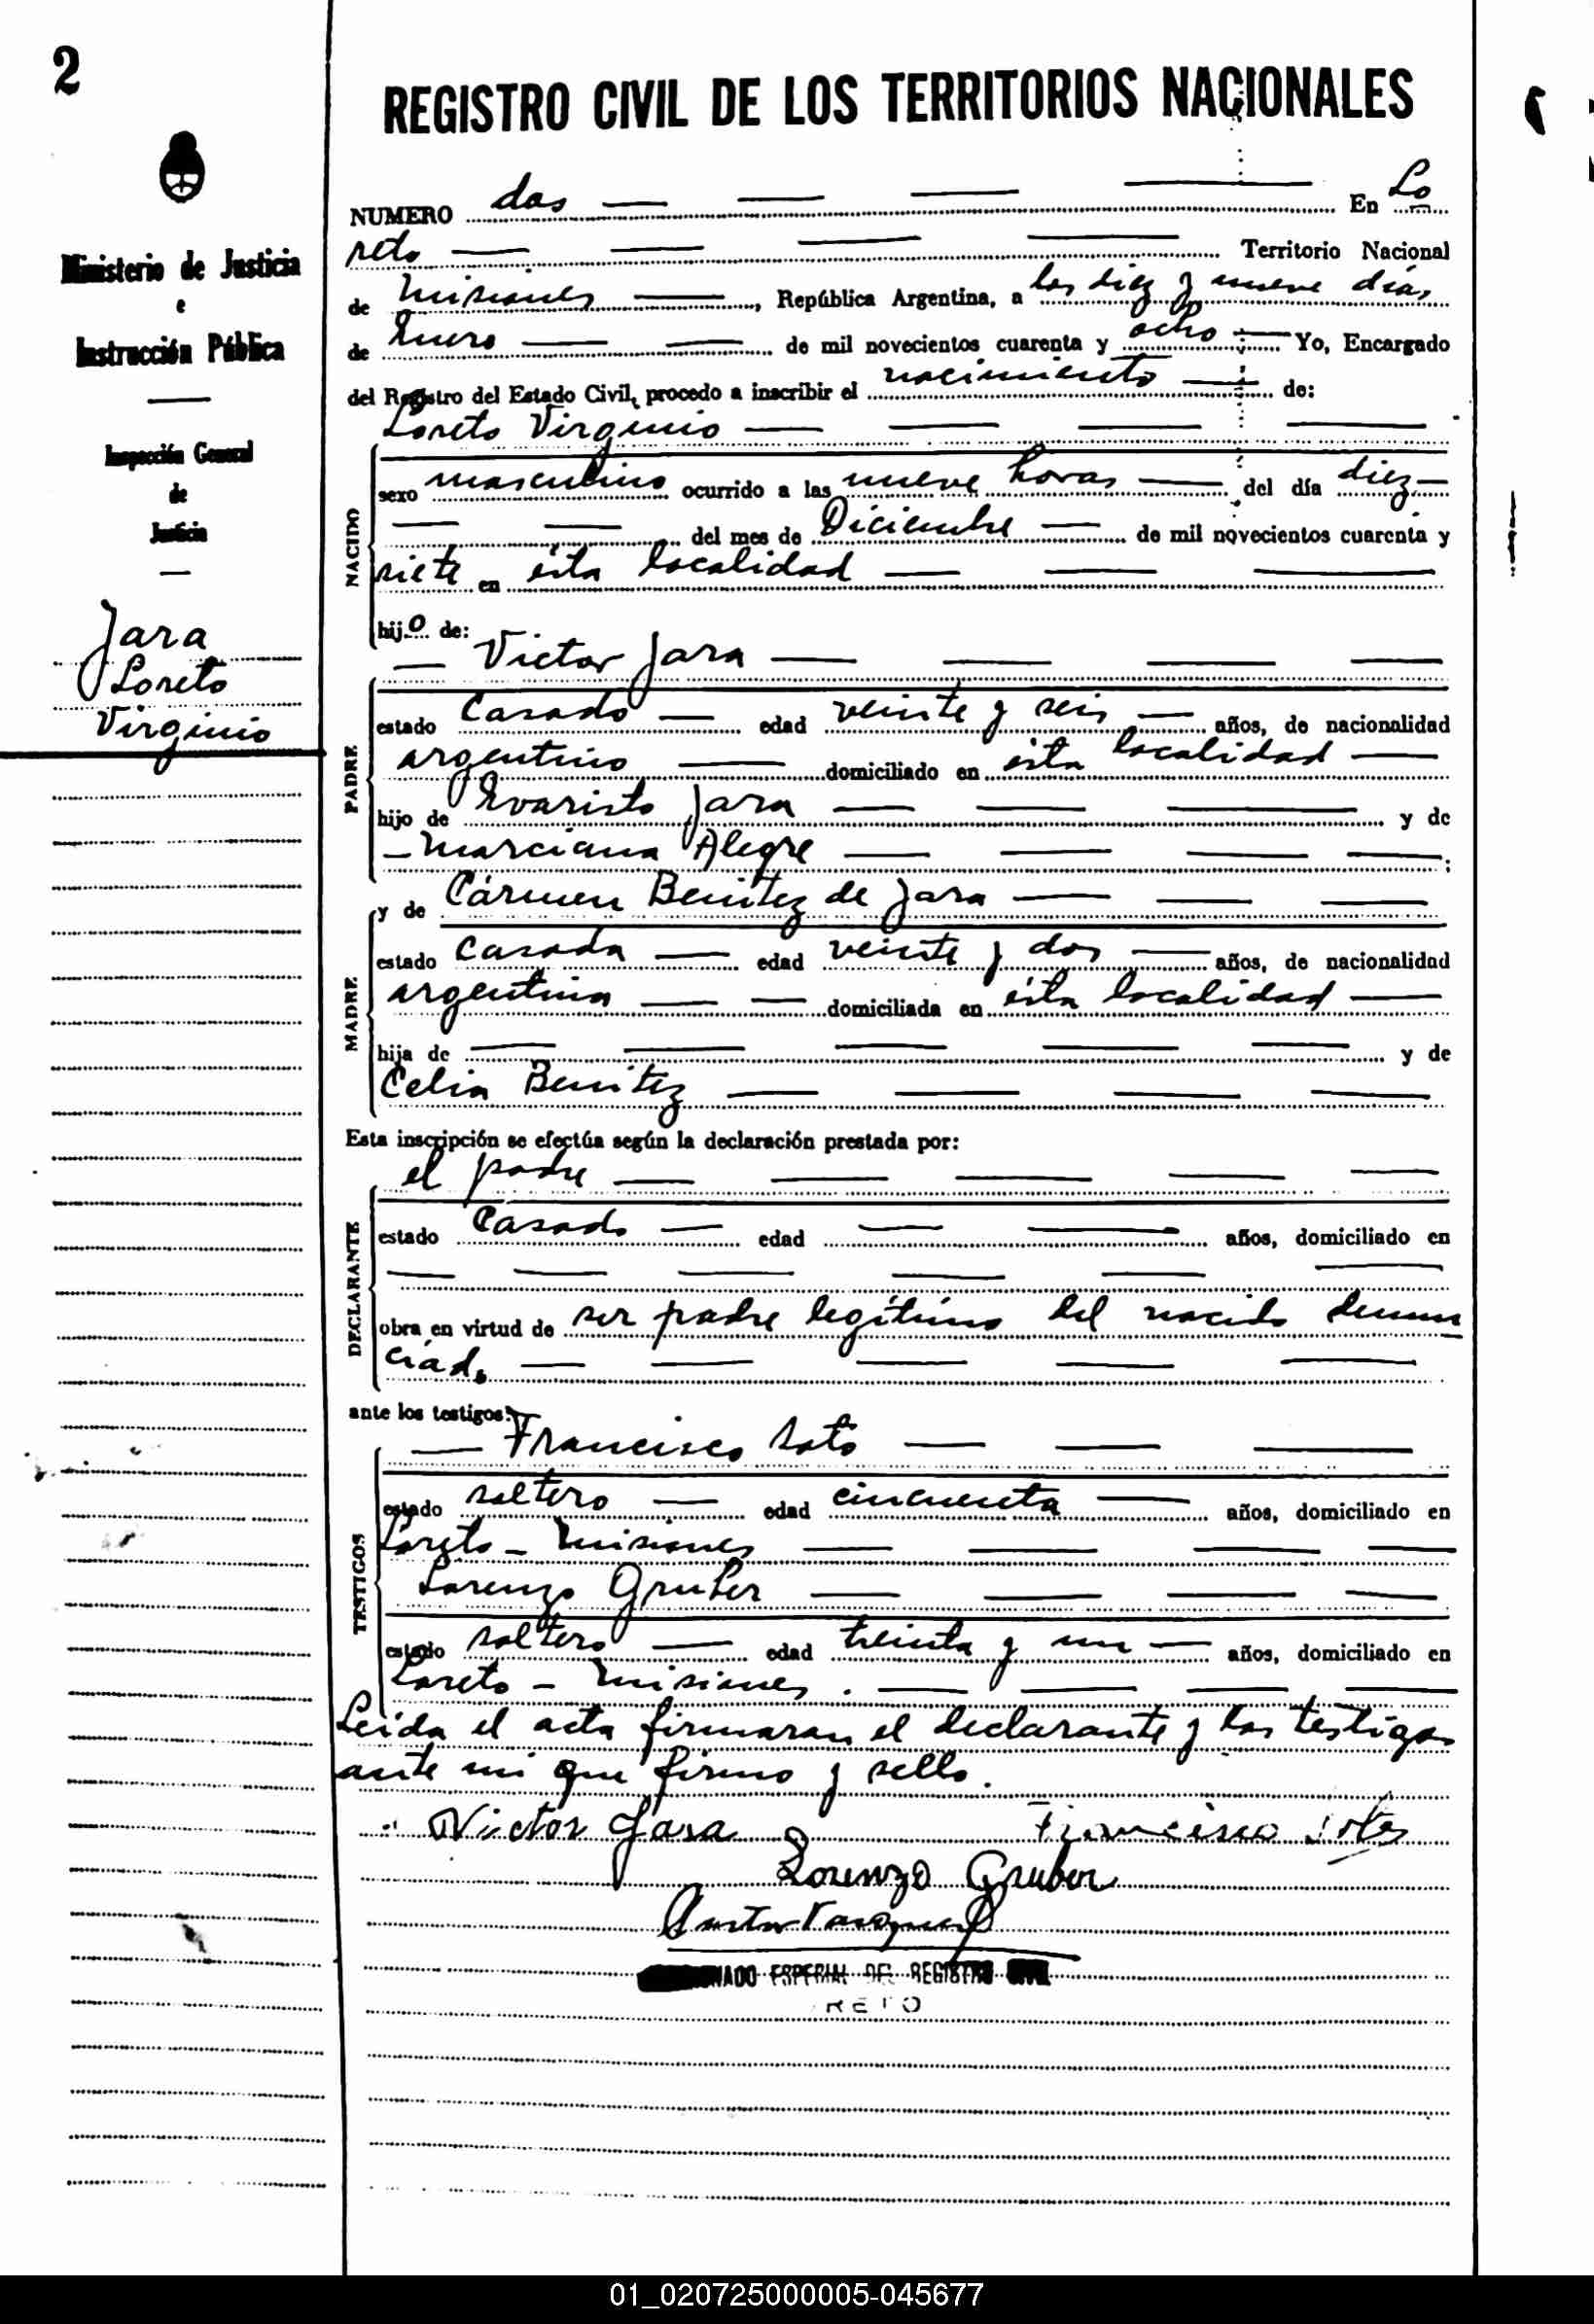 2
REGISTRO CIVIL DE LOS TERRITORIOS NACIONALES
Ministerio de Justicia
e
Instrucción Pública
Inspección General
de
Justicia
Jara
Loreto
Virginio
NUMERO dos En Lo
reto Territorio Nacional
de Misiones, República Argentina, a los diez y nueve días
de Enero de mil novecientos cuarenta y ocho Yo, Encargado
del Registro del Estado Civil, procedo a inscribir el nacimiento de:
Loreto Virginio
NACIDO
sexo masculino ocurrido a las nueve horas del día diez
del mes de Diciembre de mil novecientos cuarenta y
siete en ésta localidad
hijo de:
Victor Jara
PADRE
estado Casado edad veinte y seis años, de nacionalidad
argentino domiciliado en ésta localidad
hijo de Evaristo Jara y de
Marciana Alegre;
y de Cármen Benitez de Jara
MADRE
estado Casada edad veinte y dos años, de nacionalidad
argentina domiciliada en ésta localidad
hija de y de
Celia Benitez
Esta inscripción se efectúa según la declaración prestada por:
el padre
DECLARANTE
estado Casado edad años, domiciliado en
obra en virtud de ser padre legítimo del nacido denun
ciado
ante los testigos:
Francisco Soto
TESTIGOS
estado soltero edad cincuenta años, domiciliado en
Loreto - Misiones
Lorenzo Gruber
estado soltero edad treinta y un años, domiciliado en
Loreto - Misiones.
Leída el acta firmaran el declarante y los testigos
ante mi que firmo y sello.
Victor Jara Francisco Soto
Lorenzo Gruber
ESPECIAL DEL REGISTRO CIVIL
RETO
01_020725000005-045677